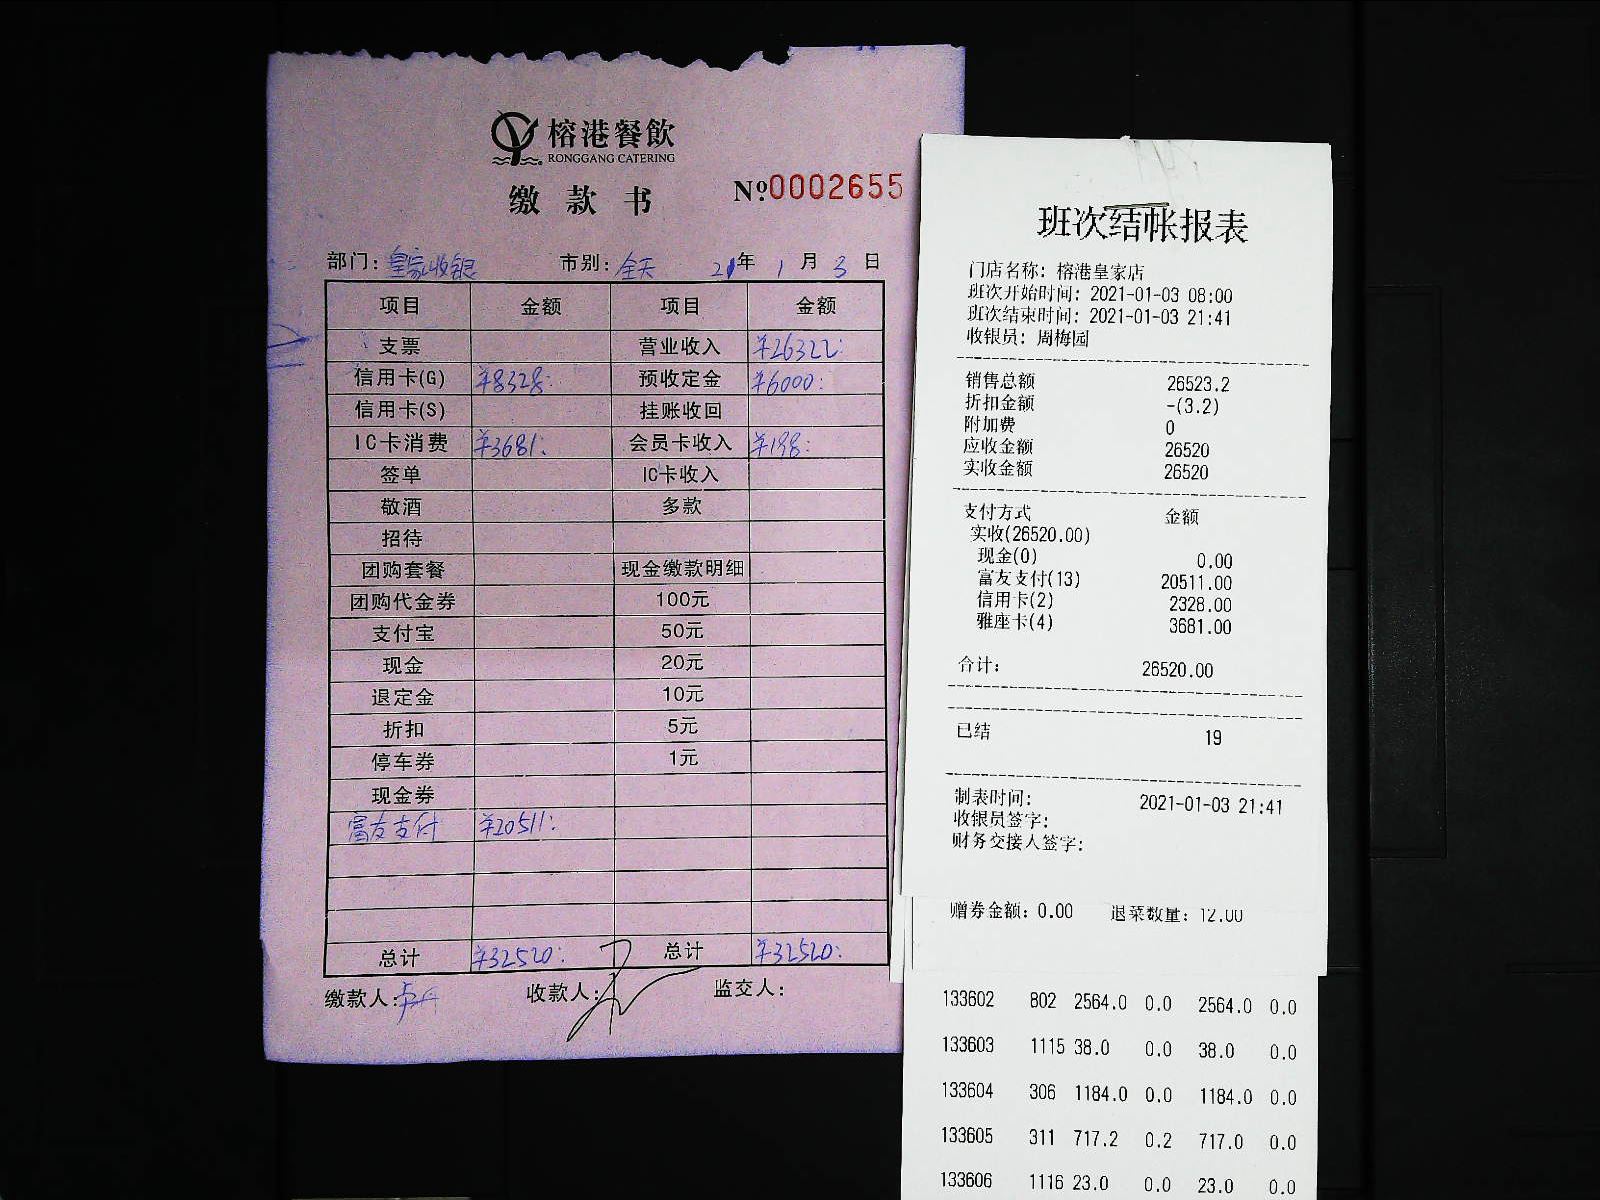 榕港餐飲
RONGGANG CATERING
缴款书
№0002655
部门：皇家收银 市别：全天 21年 1月 3日
项目 金额 项目 金额
支票 营业收入 ¥26322.
信用卡(G) ¥8328. 预收定金 ¥6000.
信用卡(S) 挂账收回
IC卡消费 ¥3681. 会员卡收入 ¥198.
签单 IC卡收入
敬酒 多款
招待
团购套餐 现金缴款明细
团购代金券 100元
支付宝 50元
现金 20元
退定金 10元
折扣 5元
停车券 1元
现金券
富友支付 ¥20511.
总计 ¥32520. 总计 ¥32520.
缴款人： 收款人： 监交人：
班次结帐报表
门店名称：榕港皇家店
班次开始时间：2021-01-03 08:00
班次结束时间：2021-01-03 21:41
收银员：周梅园
销售总额 26523.2
折扣金额 -(3.2)
附加费 0
应收金额 26520
实收金额 26520
支付方式 金额
实收(26520.00)
现金(0) 0.00
富友支付(13) 20511.00
信用卡(2) 2328.00
雅座卡(4) 3681.00
合计： 26520.00
已结 19
制表时间： 2021-01-03 21:41
收银员签字：
财务交接人签字：
赠券金额：0.00 退菜数量：12.00
133602 802 2564.0 0.0 2564.0 0.0
133603 1115 38.0 0.0 38.0 0.0
133604 306 1184.0 0.0 1184.0 0.0
133605 311 717.2 0.2 717.0 0.0
133606 1116 23.0 0.0 23.0 0.0